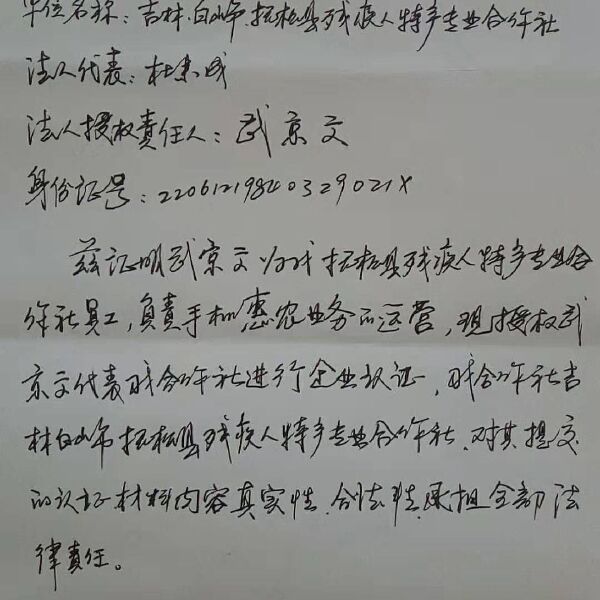 单位名称：吉林白山市抚松县残疾人特产专业合作社
法人代表：杜忠成
法人授权责任人：武京文
身份证号：22061219840329021X
兹证明武京文为我抚松县残疾人特产专业合
作社员工，负责手机惠农业务的运营，现授权武
京文代表我合作社进行企业认证，我合作社吉
林白山市抚松县残疾人特产专业合作社、对其提交
的认证材料内容真实性、合法性承担全部法
律责任。